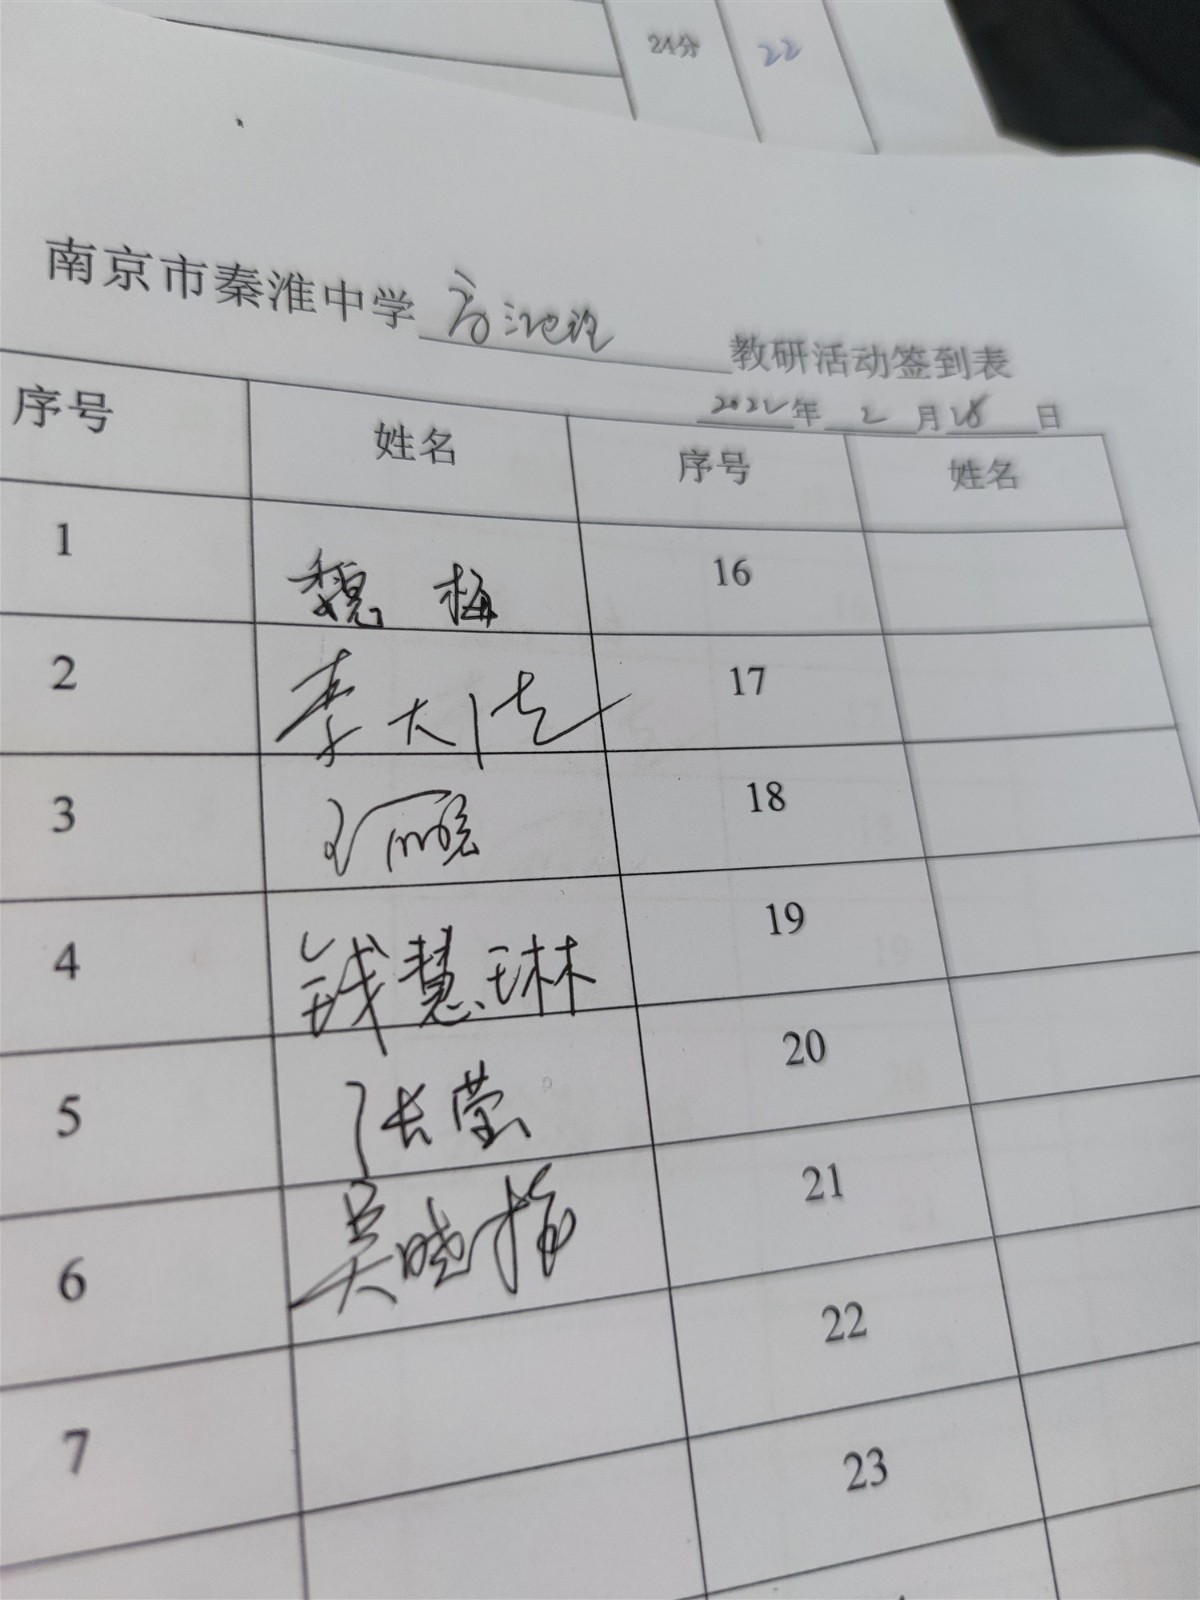 24分 22
南京市秦淮中学 高二地理 教研活动签到表
2022年 2月28日
序号 姓名 序号 姓名
1 魏梅 16
2 李大 17
3 18
4 钱慧琳 19
5 张莹 20
6 吴晓梅 21
7 22
23